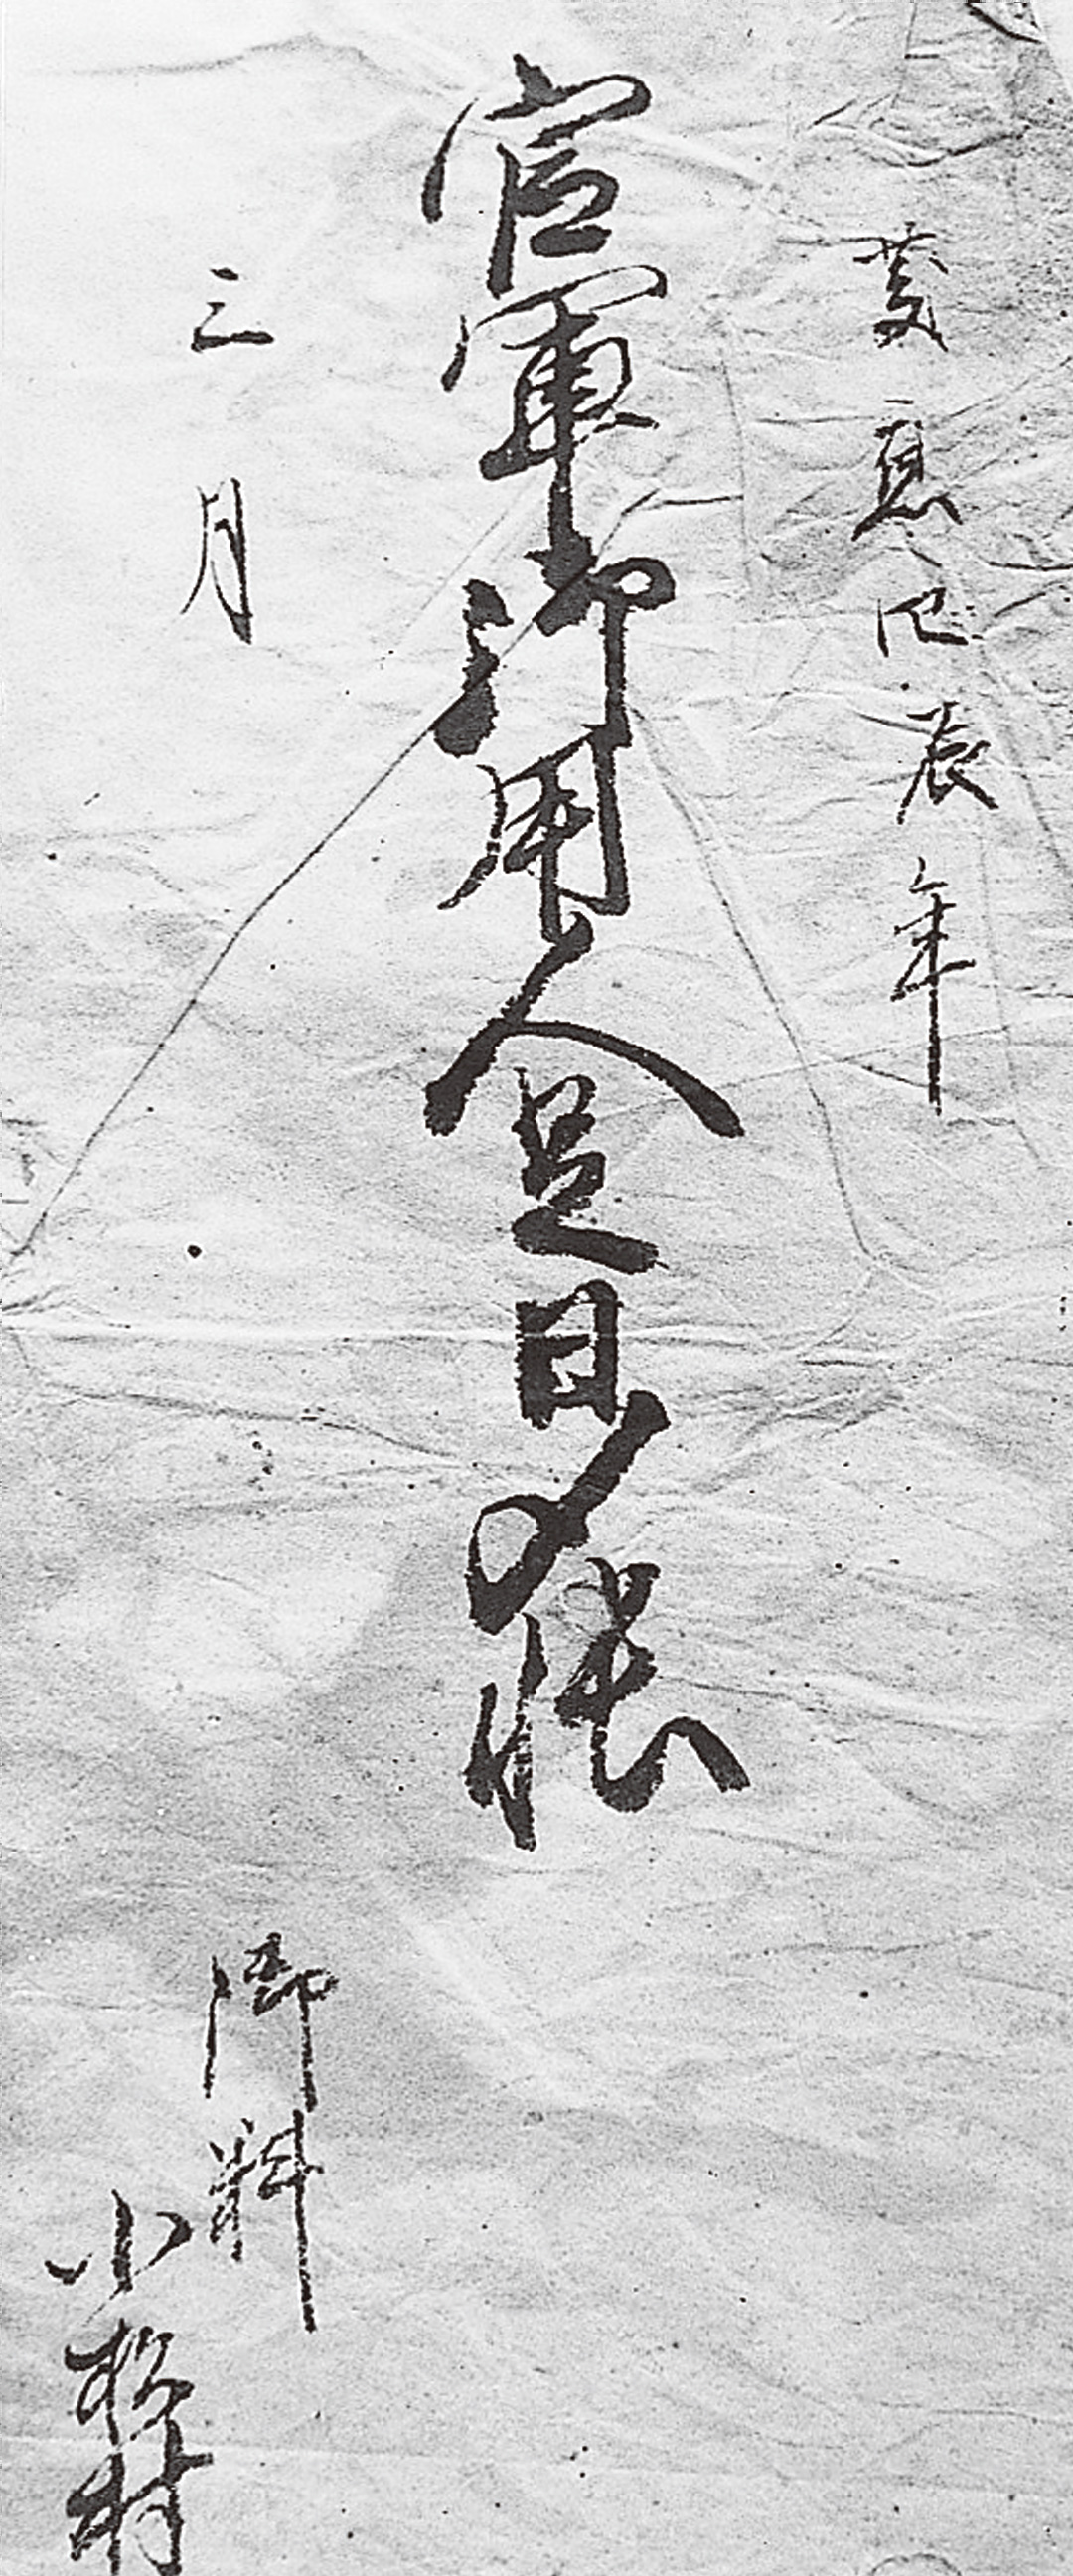 慶應四辰年
官軍御用人足日〆帳
三月
御料
小松村